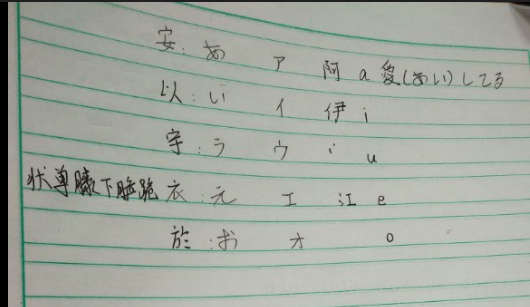 安: あ ア 阿 a 愛(あい)してる
以: い イ 伊 i
宇: う ウ u
衣: え エ 江 e
於: お オ o